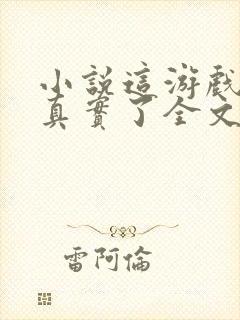 小説這游戲
真實了全文
雷阿倫